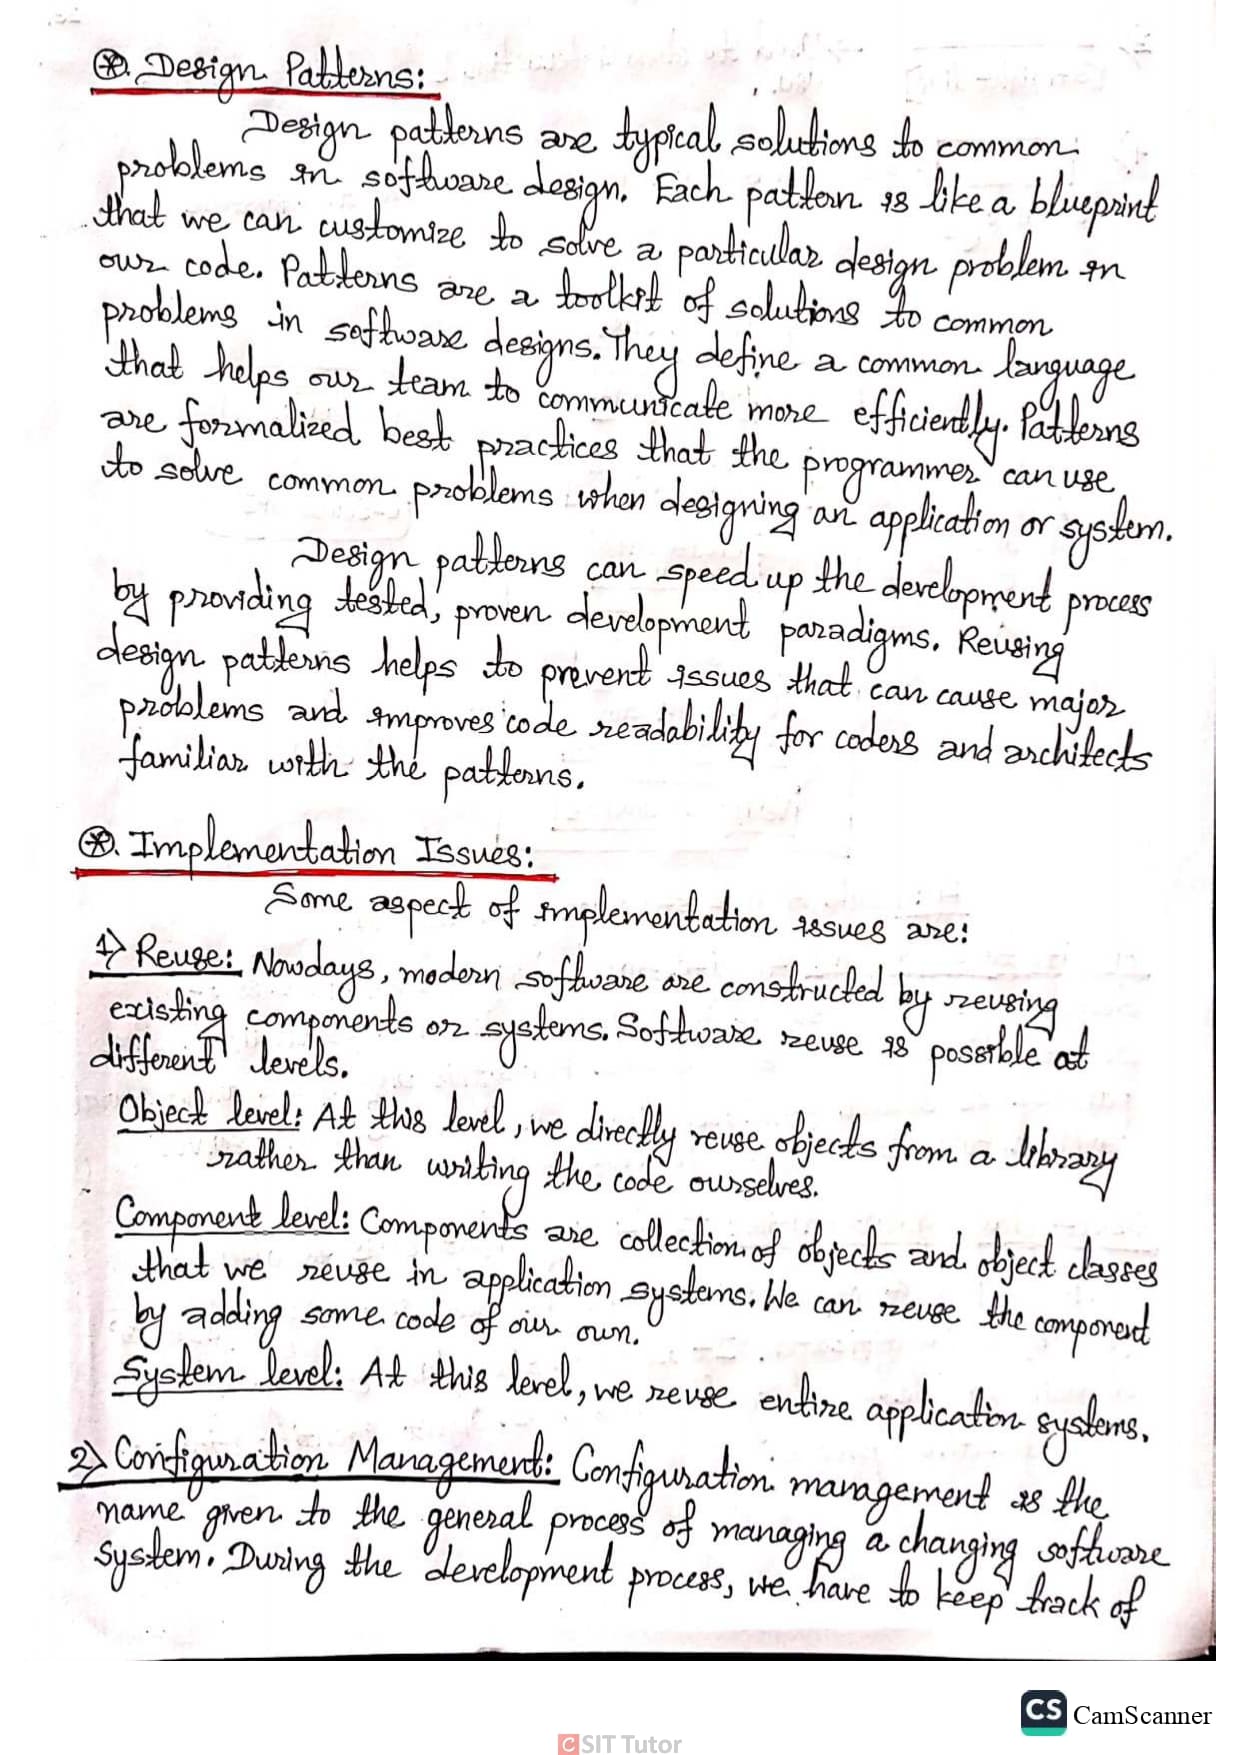 ⊛. Design Patterns:
Design patterns are typical solutions to common
problems in software design. Each pattern is like a blueprint
that we can customize to solve a particular design problem in
our code. Patterns are a toolkit of solutions to common
problems in software designs. They define a common language
that helps our team to communicate more efficiently. Patterns
are formalized best practices that the programmer can use
to solve common problems when designing an application or system.
Design patterns can speed up the development process
by providing tested, proven development paradigms. Reusing
design patterns helps to prevent issues that can cause major
problems and improves code readability for coders and architects
familiar with the patterns.
⊛. Implementation Issues:
Some aspect of implementation issues are:
1) Reuse: Nowdays, modern software are constructed by reusing
existing components or systems. Software reuse is possible at
different levels.
Object level: At this level, we directly reuse objects from a library
rather than writing the code ourselves.
Component level: Components are collection of objects and object classes
that we reuse in application systems. We can reuse the component
by adding some code of our own.
System level: At this level, we reuse entire application systems.
2) Configuration Management: Configuration management is the
name given to the general process of managing a changing software
system. During the development process, we have to keep track of
CS CamScanner
CSIT Tutor